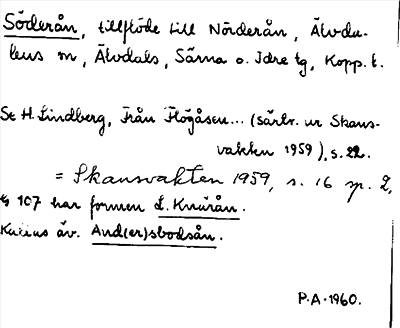 Söderån, tillflöde till Nörderån, Älvda-
lens sn, Älvdals, Särna o. Idre tg, Kopp. l.
Se H. Lindberg, Från Högåsen... (särtr. ur Skans-
vakten 1959), s. 22.
= Skansvakten 1959, s. 16 sp. 2,
107 har formen L. Knurån.
Kallas äv. And(er)sbodsån.
P.A. 1960.